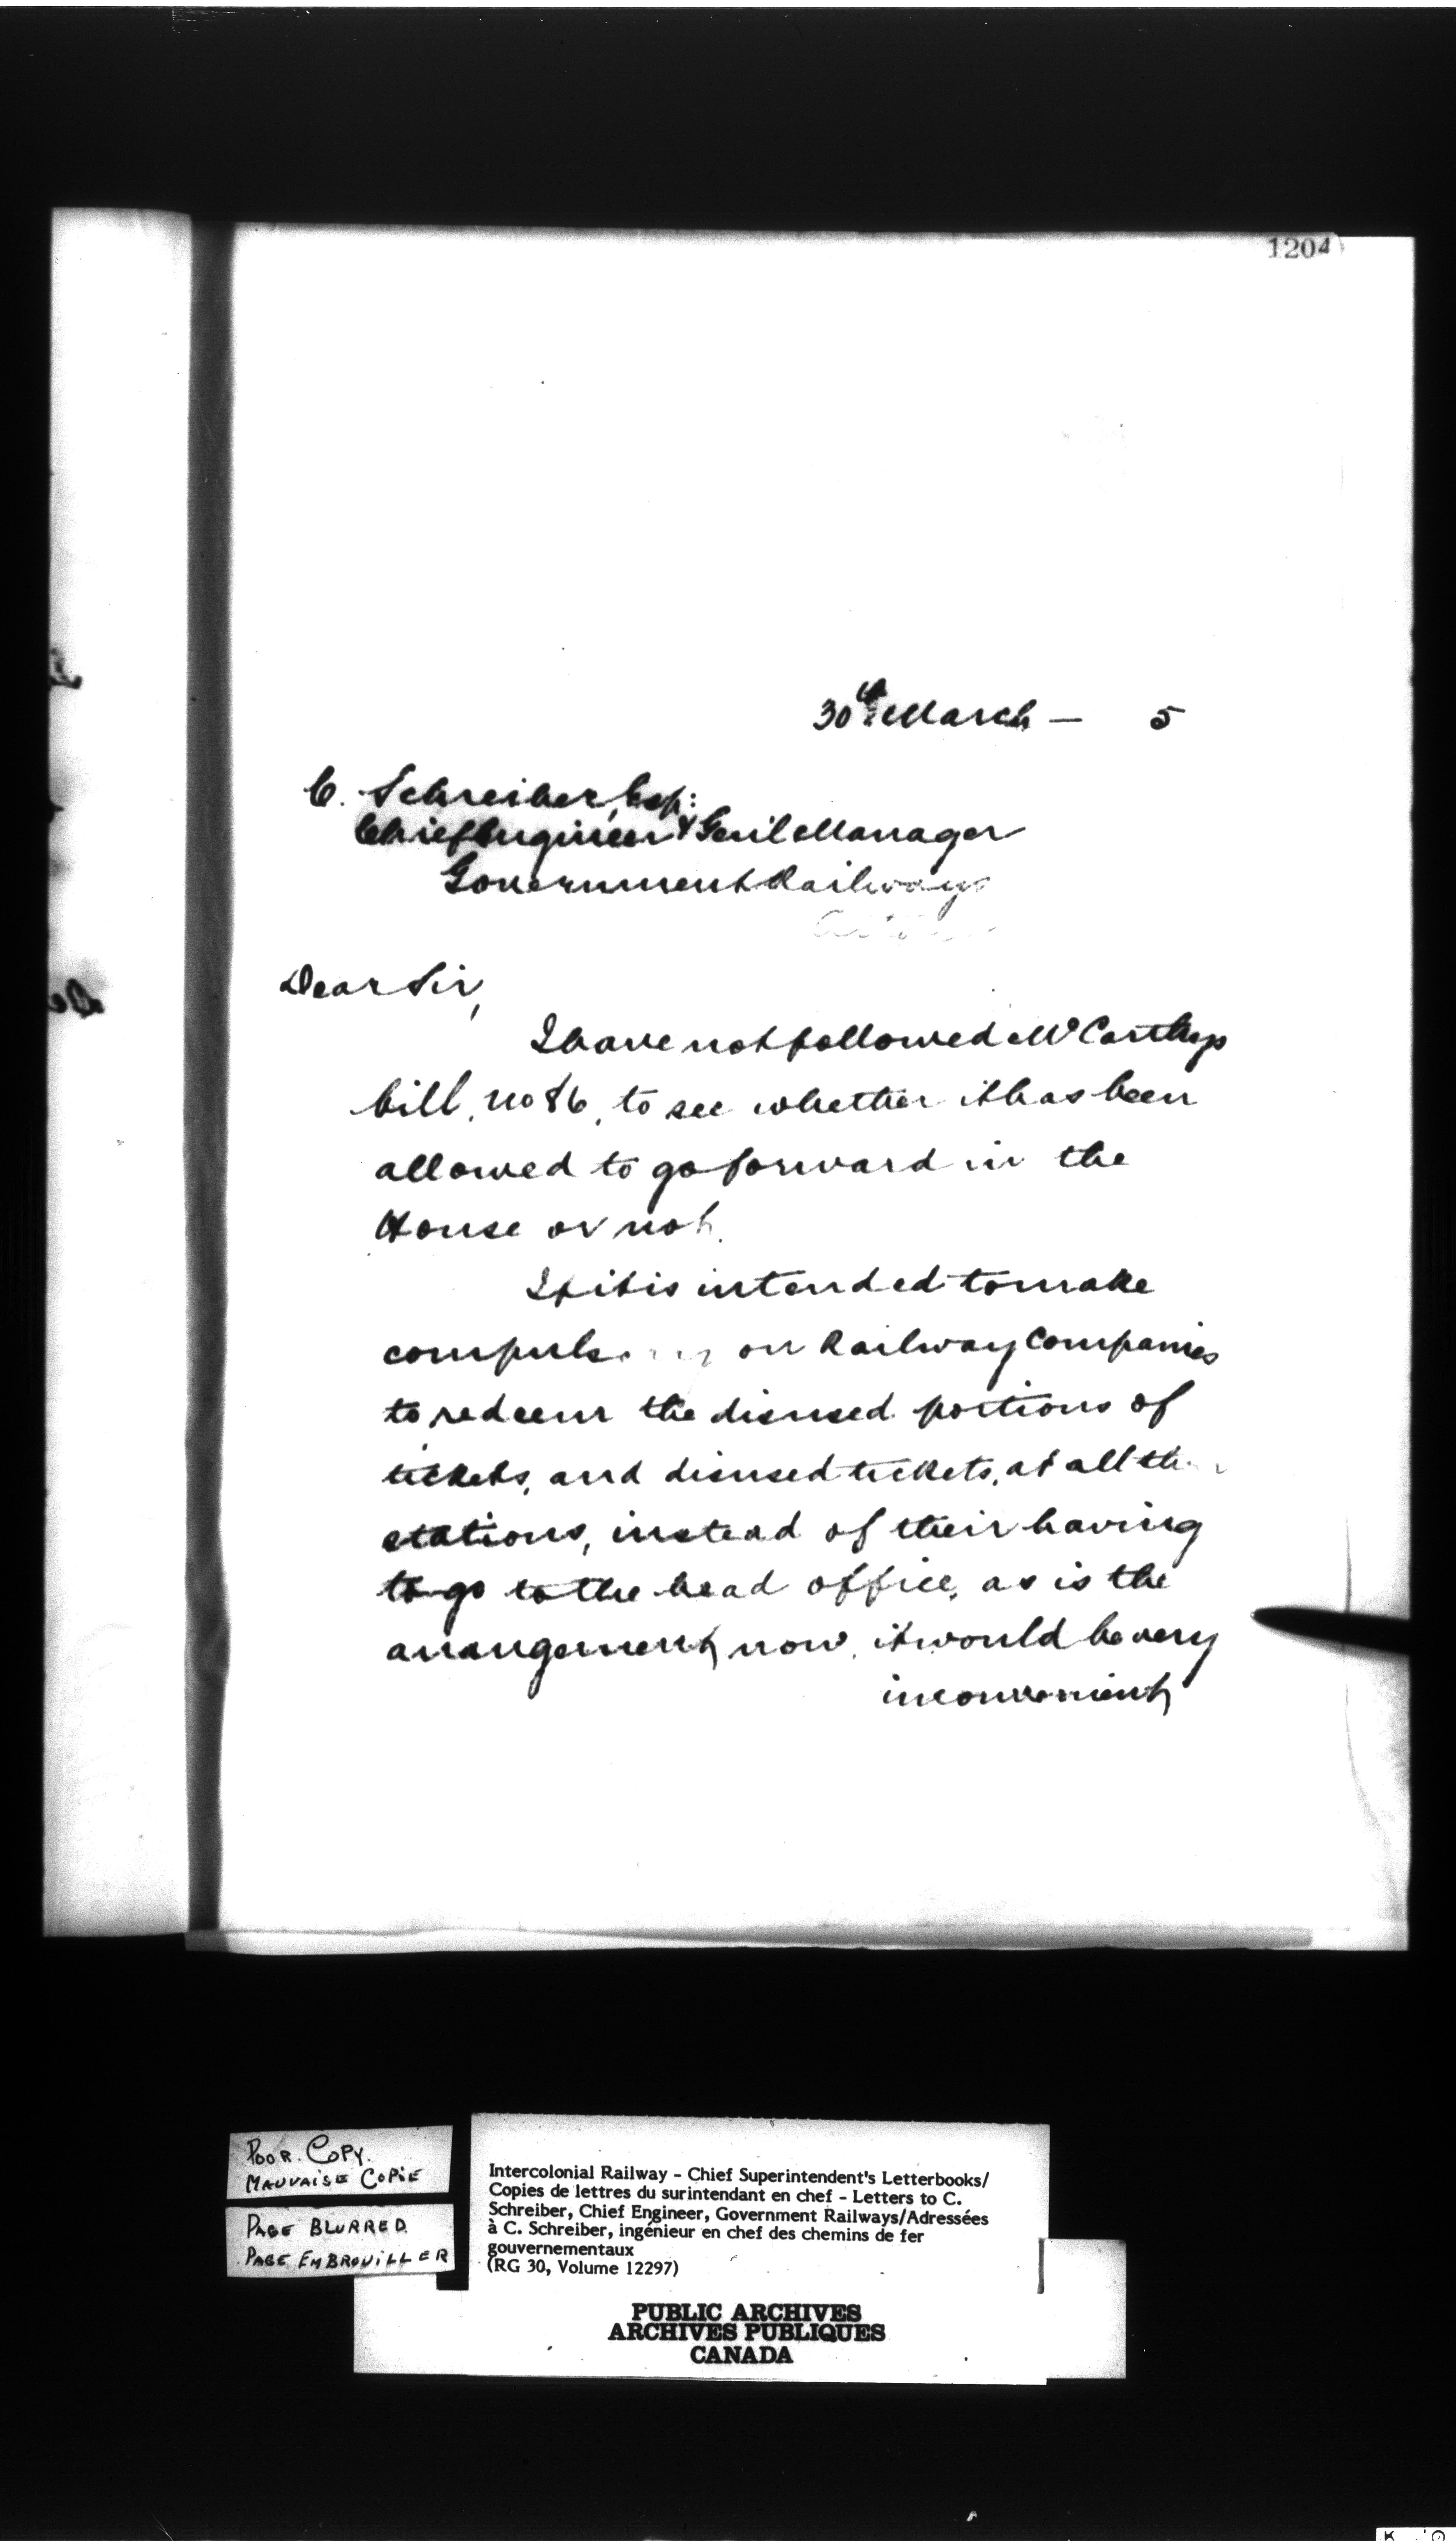 1204
30th March — 5
C. Schreiber, Esq:
Chief Engineer & Genl Manager
Government Railways
Dear Sir,
I have not followed McCarthys
bill, No 86, to see whether it has been
allowed to go forward in the
House or not.
If it is intended to make
compulsory on Railway Companies
to redeem the disused portions of
tickets, and disused tickets, at all
stations, instead of their having
to go to the head office, as is the
arrangement now, it would be very
inconvenient
POOR COPY.
MAUVAISE COPIE
PAGE BLURRED.
PAGE EMBROUILLER
Intercolonial Railway - Chief Superintendent's Letterbooks/
Copies de lettres du surintendant en chef - Letters to C.
Schreiber, Chief Engineer, Government Railways/Adressées
à C. Schreiber, ingénieur en chef des chemins de fer
gouvernementaux
(RG 30, Volume 12297)
PUBLIC ARCHIVES
ARCHIVES PUBLIQUES
CANADA